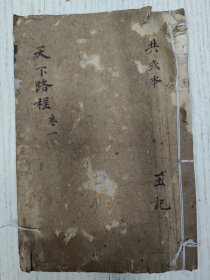 共弍本
玉記
天下路程 卷一